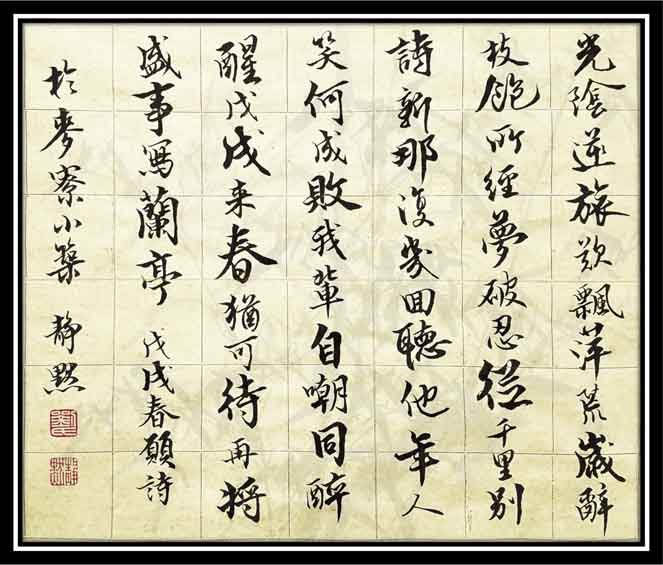 光陰逆旅歎飄萍荒歲辭
枝飽所經夢破忍從千里別
詩新那復幾回聽他年人
笑何成敗我輩自嘲同醉
醒戊戌来春猶可待再將
盛事寫蘭亭 戊戌春願詩
於麥寮小築 靜默